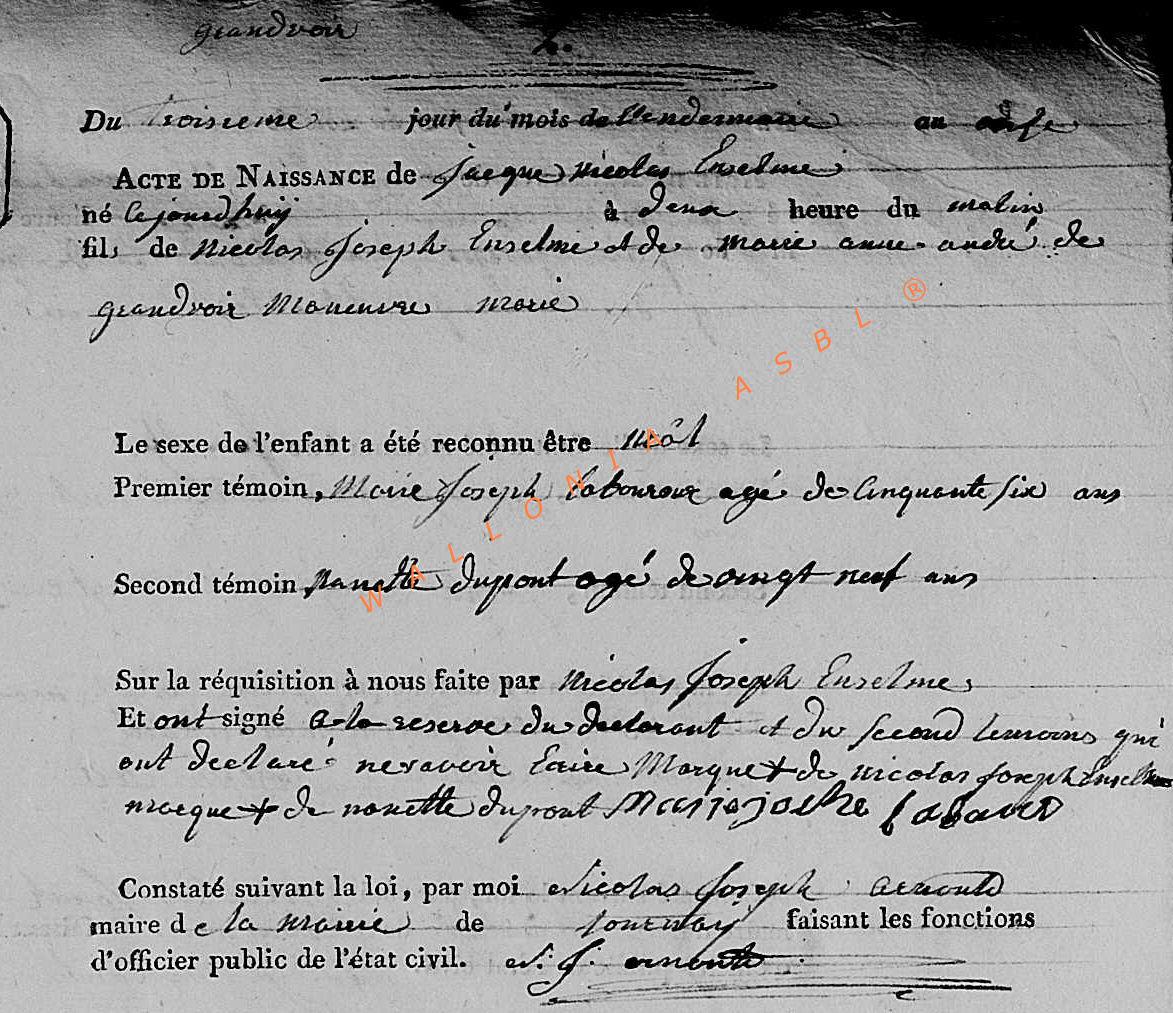 grandvoir
2.
Du troisieme jour du mois de Vendermaire an onse
ACTE DE NAISSANCE de Jacque nicolas Enselme
né Cejourdhuÿ à deux heure du matin
fils de nicolas Joseph Enselme et de marie anne andré de
grandvoir Maneuvre marié
Le sexe de l'enfant a été reconnu être mâl
Premier témoin, Marie Joseph laboureur agé de Cinquante six ans
Second témoin, Nanette dupont agé de vingt neuf ans
Sur la réquisition à nous faite par nicolas Joseph Enselme
Et ont signé a la reserve du declarant et du second temoins qui
ont declaré ne savoir Ecrire Marque + de nicolas Joseph Enselme
marque + de nanette dupont Marie joseke
Constaté suivant la loi, par moi Nicolas Joseph arnould
maire de la mairie de tournaÿ faisant les fonctions
d'officier public de l'état civil. N. J. arnould
WALLONIA ASBL ®